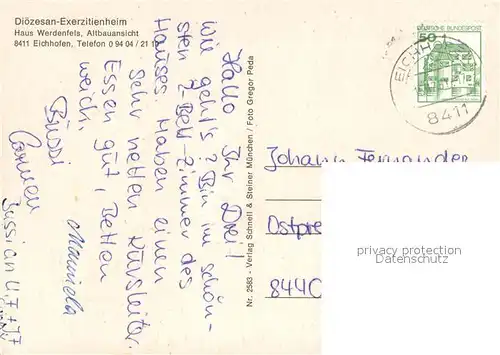 Diözesan-Exerzitienheim
Haus Werdenfels, Altbauansicht
8411 Eichhofen, Telefon 0 94 04 / 21
Hallo Ihr Drei!
Wie geht's? Bin im schön-
sten 2-Bett-Zimmer des
Hauses. Haben einen
sehr netten Kursleiter.
Essen gut, Betten
weich.
Bussi
Carmen
Manuela
Nr. 2583 - Verlag Schnell & Steiner München / Foto Gregor Peda
DEUTSCHE BUNDESPOST
50
EICHH
8411
Johann
Ostpre
8440
privacy protection
Datenschutz